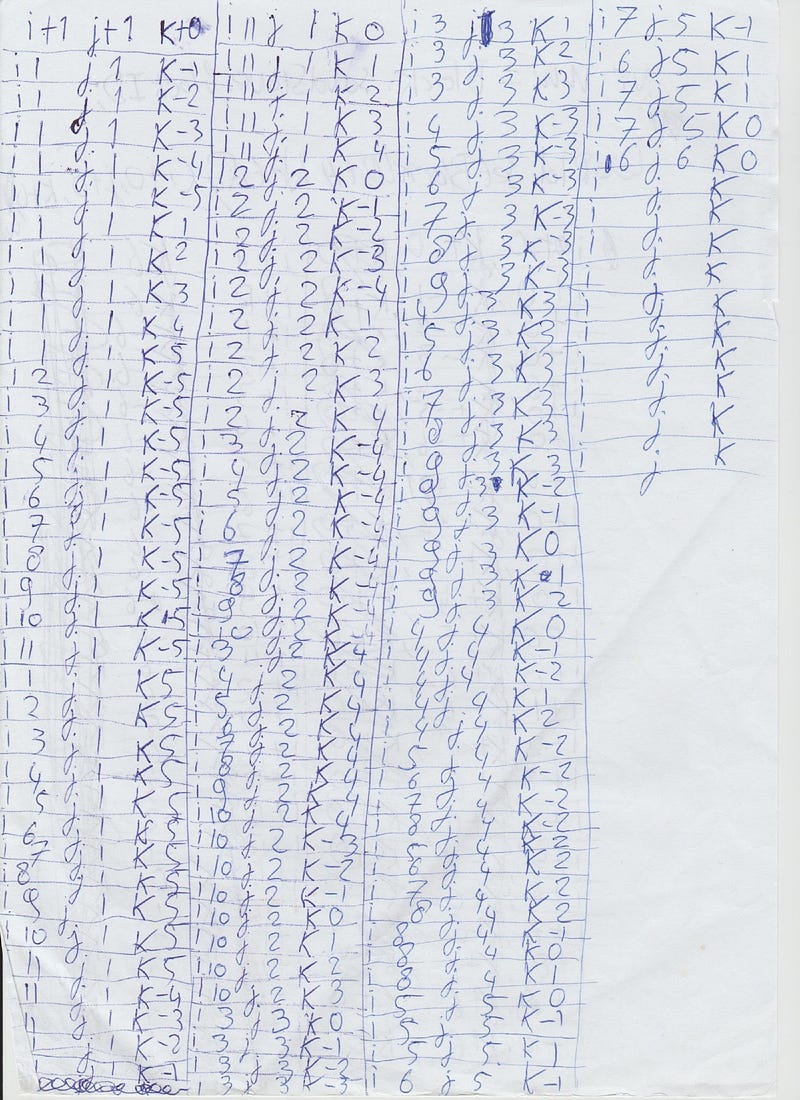 i+1 j+1 K+0
i 1 j 1 K-1
i 1 j 1 K-2
i 1 j 1 K-3
i 1 j 1 K-4
i 1 j 1 K-5
i 1 j 1 K 1
i 1 j 1 K 2
i 1 j 1 K 3
i 1 j 1 K 4
i 1 j 1 K 5
i 2 j 1 K-5
i 3 j 1 K-5
i 4 j 1 K-5
i 5 j 1 K-5
i 6 j 1 K-5
i 7 j 1 K-5
i 8 j 1 K-5
i 9 j 1 K-5
i 10 j 1 K-5
i 11 j 1 K-5
i 1 j 1 K 5
i 2 j 1 K 5
i 3 j 1 K 5
i 4 j 1 K 5
i 5 j 1 K 5
i 6 j 1 K 5
i 7 j 1 K 5
i 8 j 1 K 5
i 9 j 1 K 5
i 10 j 1 K 5
i 11 j 1 K 5
i 11 j 1 K-4
i 11 j 1 K-3
i 11 j 1 K-2
i 11 j 1 K-1
i 11 j 1 K 0
i 11 j 1 K 1
i 11 j 1 K 2
i 11 j 1 K 3
i 11 j 1 K 4
i 2 j 2 K 0
i 2 j 2 K-1
i 2 j 2 K-2
i 2 j 2 K-3
i 2 j 2 K-4
i 2 j 2 K 1
i 2 j 2 K 2
i 2 j 2 K 3
i 2 j 2 K 4
i 3 j 2 K-4
i 4 j 2 K-4
i 5 j 2 K-4
i 6 j 2 K-4
i 7 j 2 K-4
i 8 j 2 K-4
i 9 j 2 K-4
i 10 j 2 K-4
i 3 j 2 K 4
i 4 j 2 K 4
i 5 j 2 K 4
i 6 j 2 K 4
i 7 j 2 K 4
i 8 j 2 K 4
i 9 j 2 K 4
i 10 j 2 K 4
i 10 j 2 K-3
i 10 j 2 K-2
i 10 j 2 K-1
i 10 j 2 K 0
i 10 j 2 K 1
i 10 j 2 K 2
i 10 j 2 K 3
i 3 j 3 K 0
i 3 j 3 K-1
i 3 j 3 K-2
i 3 j 3 K-3
i 3 j 3 K 1
i 3 j 3 K 2
i 3 j 3 K 3
i 4 j 3 K-3
i 5 j 3 K-3
i 6 j 3 K-3
i 7 j 3 K-3
i 8 j 3 K-3
i 9 j 3 K-3
i 4 j 3 K 3
i 5 j 3 K 3
i 6 j 3 K 3
i 7 j 3 K 3
i 8 j 3 K 3
i 9 j 3 K 3
i 9 j 3 K-2
i 9 j 3 K-1
i 9 j 3 K 0
i 9 j 3 K 1
i 9 j 3 K 2
i 4 j 4 K 0
i 4 j 4 K-1
i 4 j 4 K-2
i 4 j 4 K 1
i 4 j 4 K 2
i 5 j 4 K-2
i 6 j 4 K-2
i 7 j 4 K-2
i 8 j 4 K-2
i 5 j 4 K 2
i 6 j 4 K 2
i 7 j 4 K 2
i 8 j 4 K 2
i 8 j 4 K-1
i 8 j 4 K 0
i 8 j 4 K 1
i 5 j 5 K 0
i 5 j 5 K-1
i 5 j 5 K 1
i 6 j 5 K-1
i 7 j 5 K-1
i 6 j 5 K 1
i 7 j 5 K 1
i 7 j 5 K 0
i 6 j 6 K 0
i j K
i j K
i j K
i j K
i j K
i j K
i j K
i j K
i j K
i j K